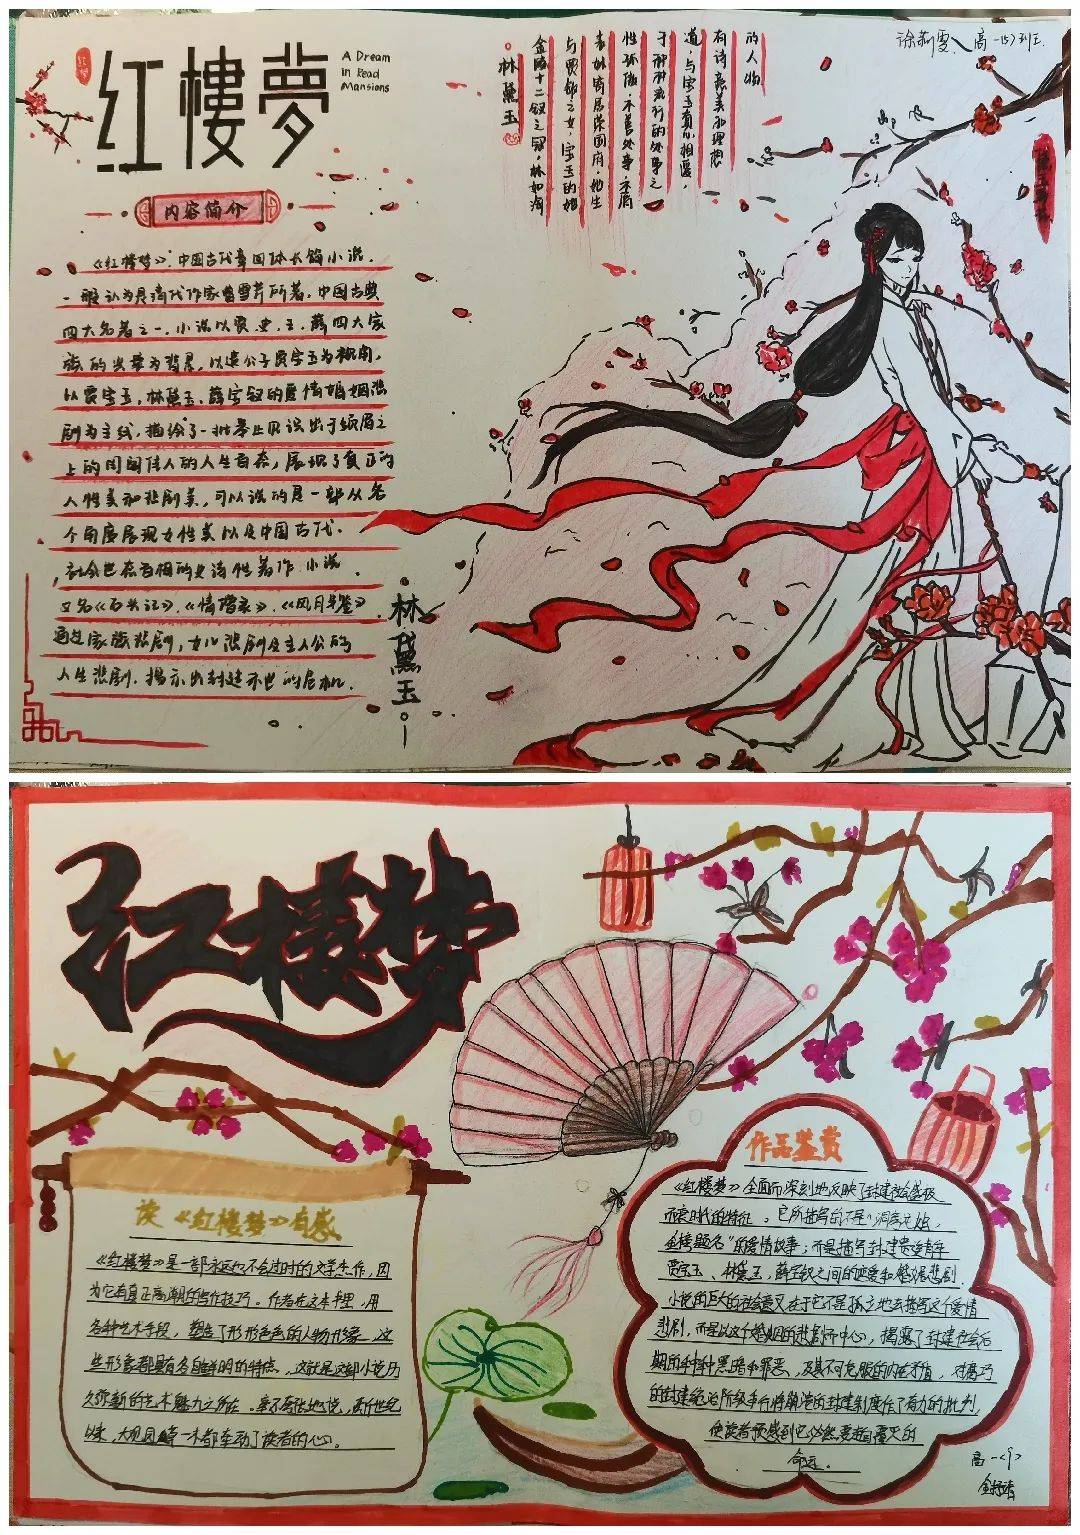 红樓夢
A Dream
in Read
Mansions
红梦
内容简介
《红楼梦》：中国古代章回体长篇小说，
一般认为是清代作家曹雪芹所著，中国古典
四大名著之一，小说以贾、史、王、薛四大家
族的兴衰为背景，以贵公子贾宝玉为视角，
以贾宝玉，林黛玉、薛宝钗的爱情婚姻悲
剧为主线，描绘了一批举止见识出于须眉之
上的闺阁佳人的人生百态，展现了真正的
人性美和悲剧美，可以说的是一部从各
个角度展现女性美以及中国古代
社会世态百相的史诗性著作 小说
又名《石头记》、《情僧录》、《风月宝鉴》
通过家族悲剧，女儿悲剧及主人公的
人生悲剧，揭示出封建末世的危机．
林黛玉
金陵十二钗之冠，林如海
与贾敏之女，宝玉的姑
表妹寄居荣国府，她生
性孤傲，不善处事，不屑
于 的处事之
道，与宝玉真心相爱，
有诗意美和理想
的人物
高一
班
林黛玉
红楼梦
读《红楼梦》有感
《红楼梦》是一部永远也不会过时的文学杰作，因
为它有真正高潮的写作技巧。作者在这本书里，用
各种艺术手段，塑造了形形色色的人物形象，这
些形象都具有各自鲜明的特点，这就是这部小说历
久弥新的艺术魅力之所在．毫不夸张地说，两个世纪
以来，大观园 一木都牵动了读者的心。
作品鉴赏
《红楼梦》全面而深刻地反映了封建社会盛极
而衰时代的特征．它所描写的不是“洞房花烛，
金榜题名”的爱情故事；而是描写封建贵族青年
贾宝玉、林黛玉，薛宝钗之间的恋爱和婚姻悲剧．
小说的巨大的社会意义在于它不是孤立地去描写这个爱情
悲剧，而是以这个婚姻的悲剧所中心，揭露了封建社会后
期的种种黑暗和罪恶，及其不可克服的内在矛盾，对腐朽
的封建统治阶级和行将崩溃的封建制度作了有力的批判，
使读者预感到它必然要走向覆灭的
命运。
高一<9>